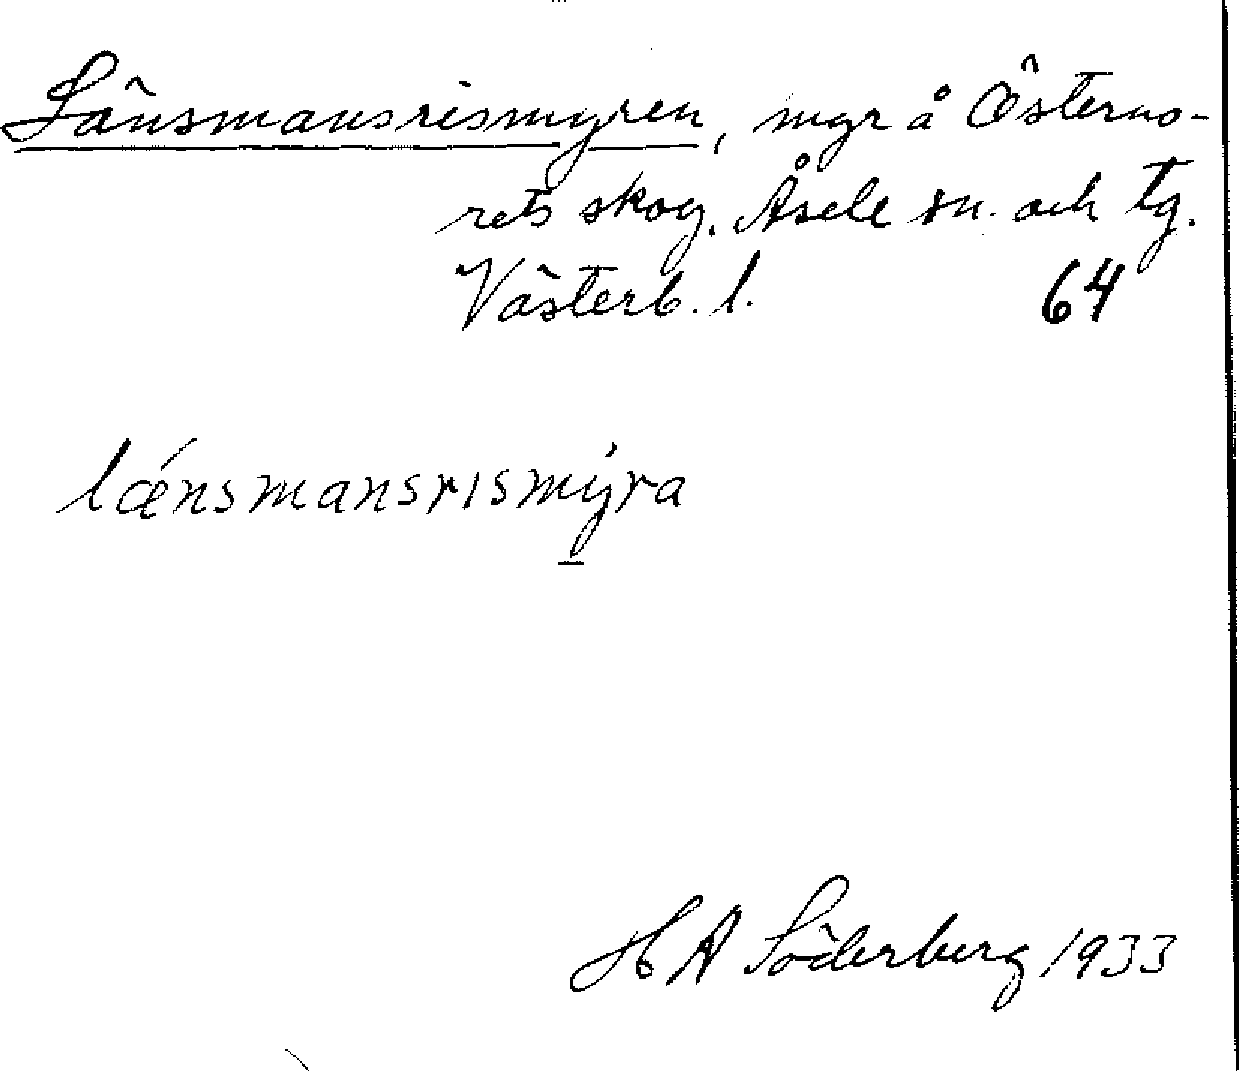 Länsmansrismyren, myr å Österno-
rets skog. Åsele sn. och tg.
Västerb. l. 64
lǽnsmansrısmỳ̱ra
H A Söderberg 1933